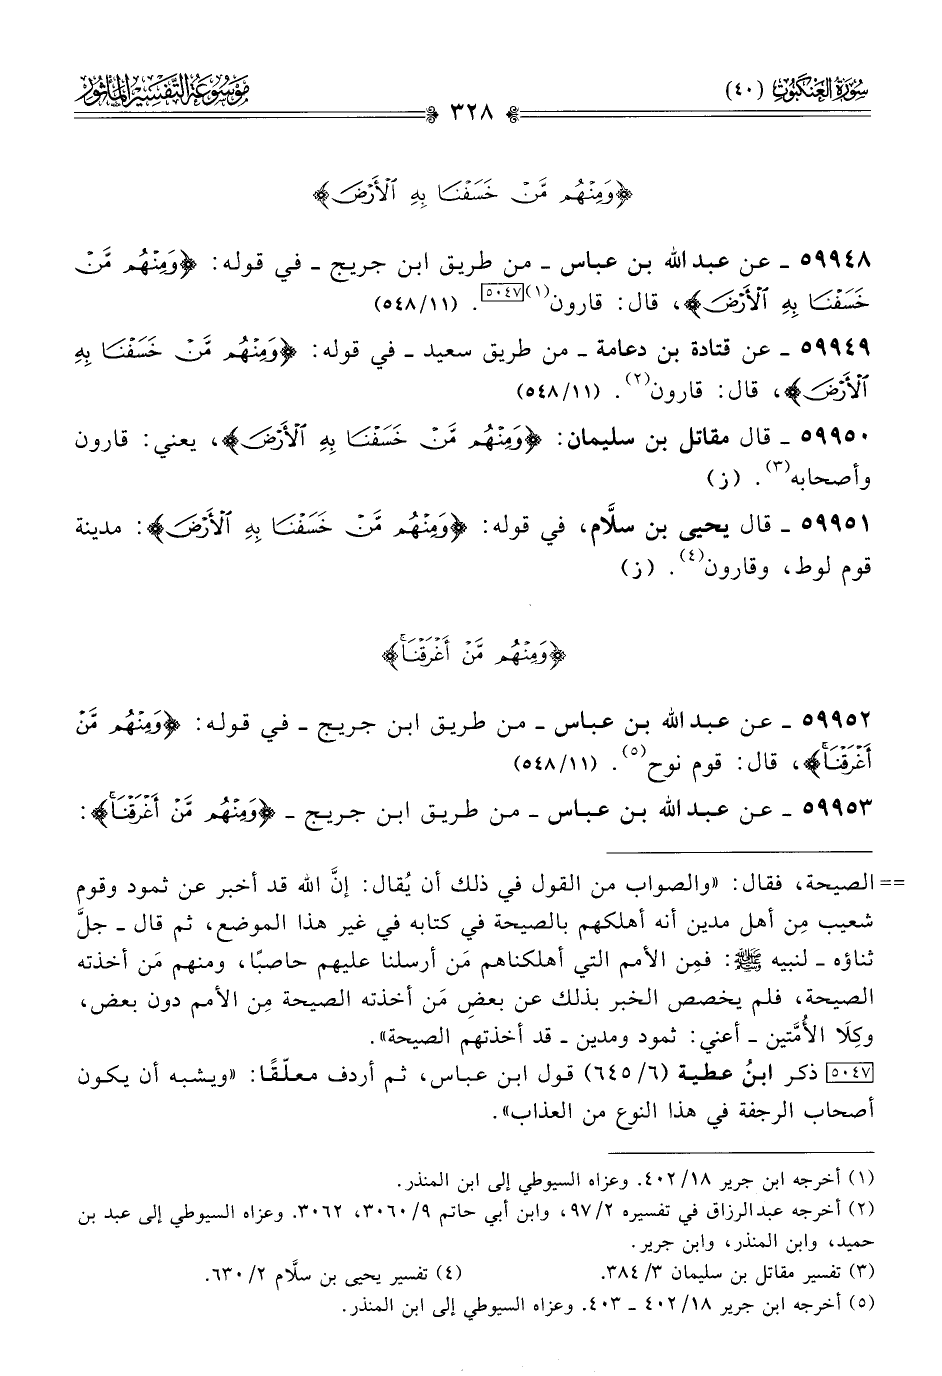 سُورَةُ العَنْكَبُوت (٤٠)
٣٢٨
مَوْسُوعَةُ التَّفْسِيرِ المَأْثُور
﴿وَمِنْهُم مَّنْ خَسَفْنَا بِهِ ٱلْأَرْضَ﴾
٥٩٩٤٨ ـ عن عبد الله بن عباس ـ من طريق ابن جريج ـ في قوله: ﴿وَمِنْهُم مَّنْ
خَسَفْنَا بِهِ ٱلْأَرْضَ﴾، قال: قارون(١)[٥٠٤٧]. (٥٤٨/١١)
٥٩٩٤٩ ـ عن قتادة بن دعامة ـ من طريق سعيد ـ في قوله: ﴿وَمِنْهُم مَّنْ خَسَفْنَا بِهِ
ٱلْأَرْضَ﴾، قال: قارون(٢). (٥٤٨/١١)
٥٩٩٥٠ ـ قال مقاتل بن سليمان: ﴿وَمِنْهُم مَّنْ خَسَفْنَا بِهِ ٱلْأَرْضَ﴾، يعني: قارون
وأصحابه(٣). (ز)
٥٩٩٥١ ـ قال يحيى بن سلَّام، في قوله: ﴿وَمِنْهُم مَّنْ خَسَفْنَا بِهِ ٱلْأَرْضَ﴾: مدينة
قوم لوط، وقارون(٤). (ز)
﴿وَمِنْهُم مَّنْ أَغْرَقْنَاۚ﴾
٥٩٩٥٢ ـ عن عبد الله بن عباس ـ من طريق ابن جريج ـ في قوله: ﴿وَمِنْهُم مَّنْ
أَغْرَقْنَاۚ﴾، قال: قوم نوح(٥). (٥٤٨/١١)
٥٩٩٥٣ ـ عن عبد الله بن عباس ـ من طريق ابن جريج ـ ﴿وَمِنْهُم مَّنْ أَغْرَقْنَاۚ﴾:
== الصيحة، فقال: «والصواب من القول في ذلك أن يُقال: إنَّ الله قد أخبر عن ثمود وقوم
شعيب مِن أهل مدين أنه أهلكهم بالصيحة في كتابه في غير هذا الموضع، ثم قال ـ جلَّ
ثناؤه ـ لنبيه ﷺ: فمِن الأمم التي أهلكناهم مَن أرسلنا عليهم حاصبًا، ومنهم مَن أخذته
الصيحة، فلم يخصص الخبر بذلك عن بعضِ مَن أخذته الصيحة مِن الأمم دون بعض،
وكِلَا الأُمَّتين ـ أعني: ثمود ومدين ـ قد أخذتهم الصيحة».
[٥٠٤٧] ذكر ابنُ عطية (٦/ ٦٤٥) قول ابن عباس، ثم أردف معلّقًا: «ويشبه أن يكون
أصحاب الرجفة في هذا النوع من العذاب».
(١) أخرجه ابن جرير ١٨/ ٤٠٢. وعزاه السيوطي إلى ابن المنذر.
(٢) أخرجه عبدالرزاق في تفسيره ٢/ ٩٧، وابن أبي حاتم ٩/ ٣٠٦٠، ٣٠٦٢. وعزاه السيوطي إلى عبد بن
حميد، وابن المنذر، وابن جرير.
(٣) تفسير مقاتل بن سليمان ٣/ ٣٨٤. (٤) تفسير يحيى بن سلَّام ٢/ ٦٣٠.
(٥) أخرجه ابن جرير ١٨/ ٤٠٢ ـ ٤٠٣. وعزاه السيوطي إلى ابن المنذر.